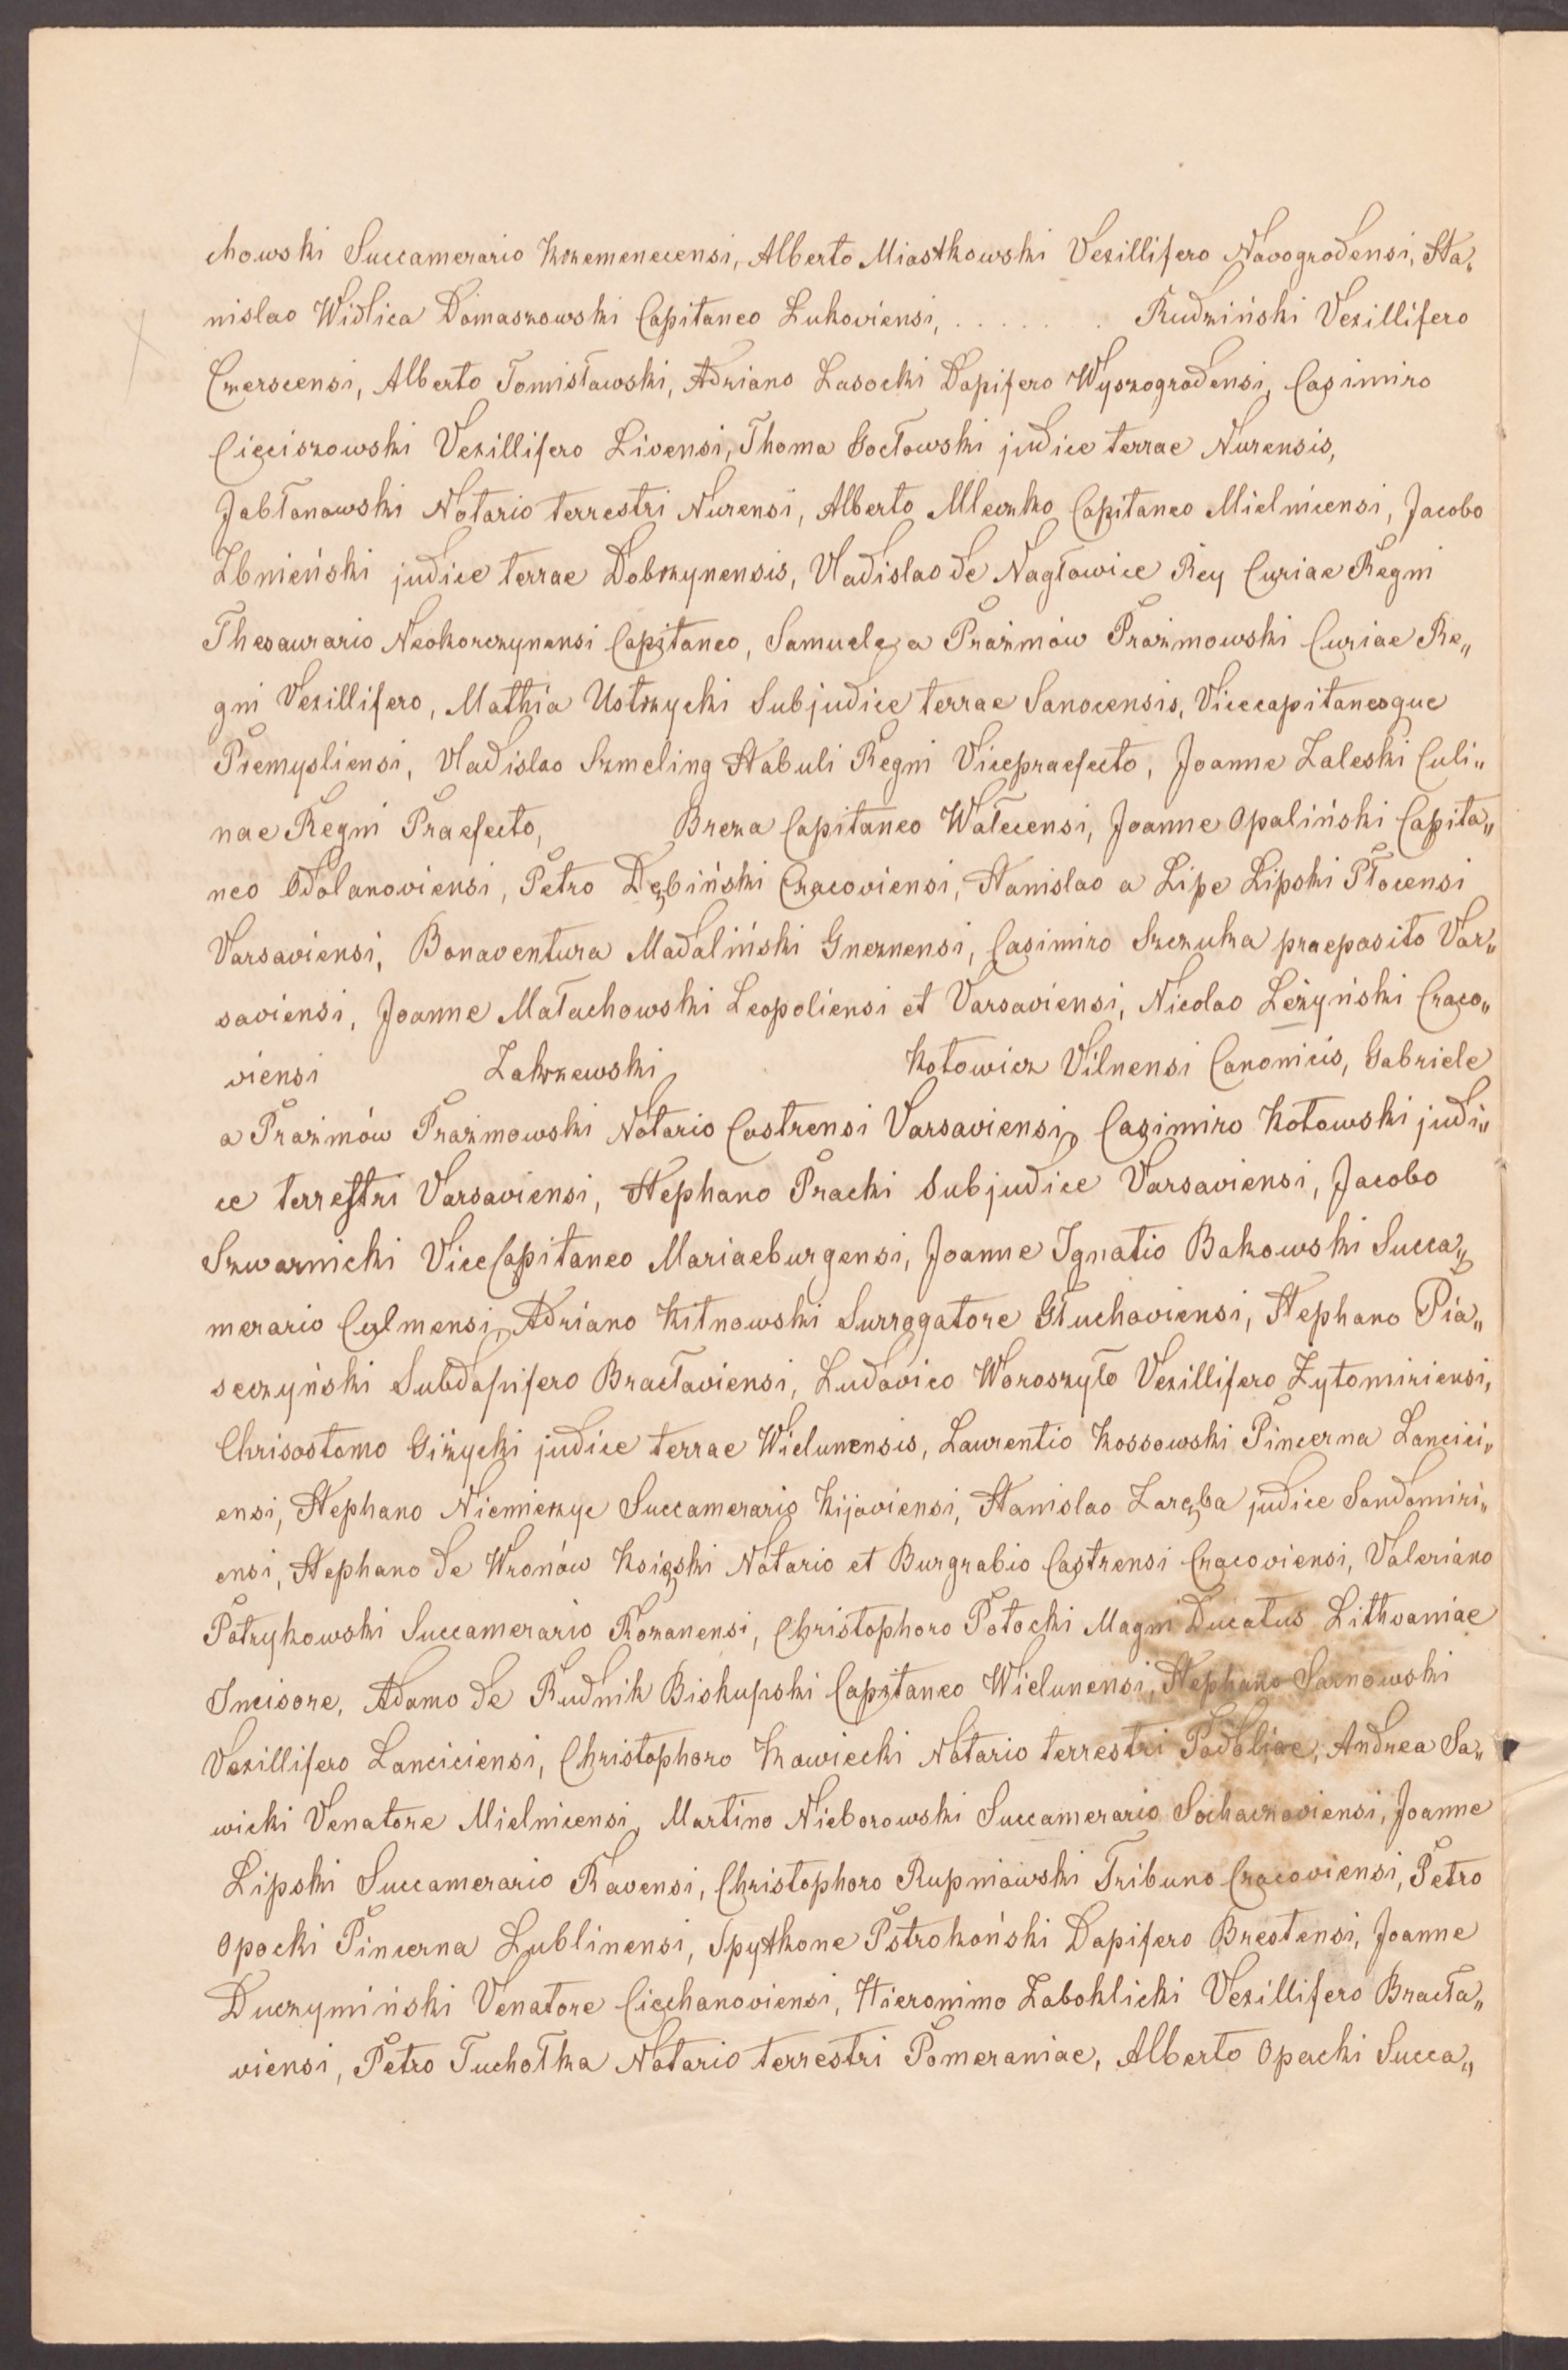 chowski Succamerario Krzemenecensi, Alberto Miastkowski Vexillifero Novogrodensi, Sta„
nislao Widlica Domaszowski Capitaneo Lukoviensi, . . . . . . . Rudziński Vexillifero
Czerscensi, Alberto Tomisławski, Adriano Lasocki Dapifero Wyszogrodensi, Casimiro
Cieciszowski Vexillifero Livensi, Thoma Gocłowski judice terrae Nurensis,
Jabłonowski Notario terrestri Nurensi, Alberto Mleczko Capitaneo Mielnicensi, Jacobo
Zbnieński judice terrae Dobrzynensis, Vladislao de Nagłowice Rey Curiae Regni
Thesaurario Neokorczynensi Capitaneo, Samuele a Prażmów Prażmowski Curiae Re„
gni Vexillifero, Mathia Ustrzycki Subjudice terrae Sanocensis, Vicecapitaneoque
Premysliensi, Vladislao Szmeling Stabuli Regni Vicepraefecto, Joanne Zaleski Culi„
nae Regni Praefecto, Breza Capitaneo Wałecensi, Joanne Opaliński Capita„
neo Odolanoviensi, Petro Dębiński Cracoviensi, Stanislao a Lipe Lipski Płocensi
Varsaviensi, Bonaventura Madaliński Gneznensi, Casimiro Szczuka praeposito Var„
saviensi, Joanne Małachowski Leopoliensi et Varsaviensi, Nicolao Leżyński Craco„
viensi Zakrzewski, Kotowicz Vilnensi Canonicis, Gabriele
a Prażmów Prażmowski Notario Castrensi Varsaviensi, Casimiro Kotowski judi„
ce terrestri Varsaviensi, Stephano Pracki Subjudice Varsaviensi, Jacobo
Szwarnicki ViceCapitaneo Mariaeburgensi, Joanne Ignatio Bakowski Succa„
merario Culmensi, Adriano Kitnowski Surrogatore Głuchoviensi, Stephano Pia„
seczyński Subdapifero Bracłaviensi, Ludovico Woroszyło Vexillifero Zytomiriensi,
Chrisostomo Giżycki judice terrae Wielunensis, Laurentio Kossowski Pincerna Lancici„
ensi, Stephano Niemierzyc Succamerario Kijoviensi, Stanislao Zaręba judice Sandomiri„
ensi, Stephano de Wronów Książki Notario et Burgrabio Castrensi Cracoviensi, Valeriano
Potrykowski Succamerario Rozanensi, Christophoro Potocki Magni Ducatus Lithvaniae
Incisore, Adamo de Rudnik Biskupski Capitaneo Wielunensi, Stephano Sarnowski
Vexillifero Lanciciensi, Christophoro Kawiecki Notario terrestri Podoliae, Andrea Sa„
wicki Venatore Mielnicensi, Martino Nieborowski Succamerario Sochaczoviensi, Joanne
Lipski Succamerario Ravensi, Christophoro Rupniowski Tribuno Cracoviensi, Petro
Opocki Pincerna Lublinensi, Spytkone Pstrokoński Dapifero Brestensi, Joanne
Duczymiński Venatore Ciechanoviensi, Hieronimo Zaboklicki Vexillifero Bracła„
viensi, Petro Tuchołka Notario terrestri Pomeraniae, Alberto Opacki Succa„